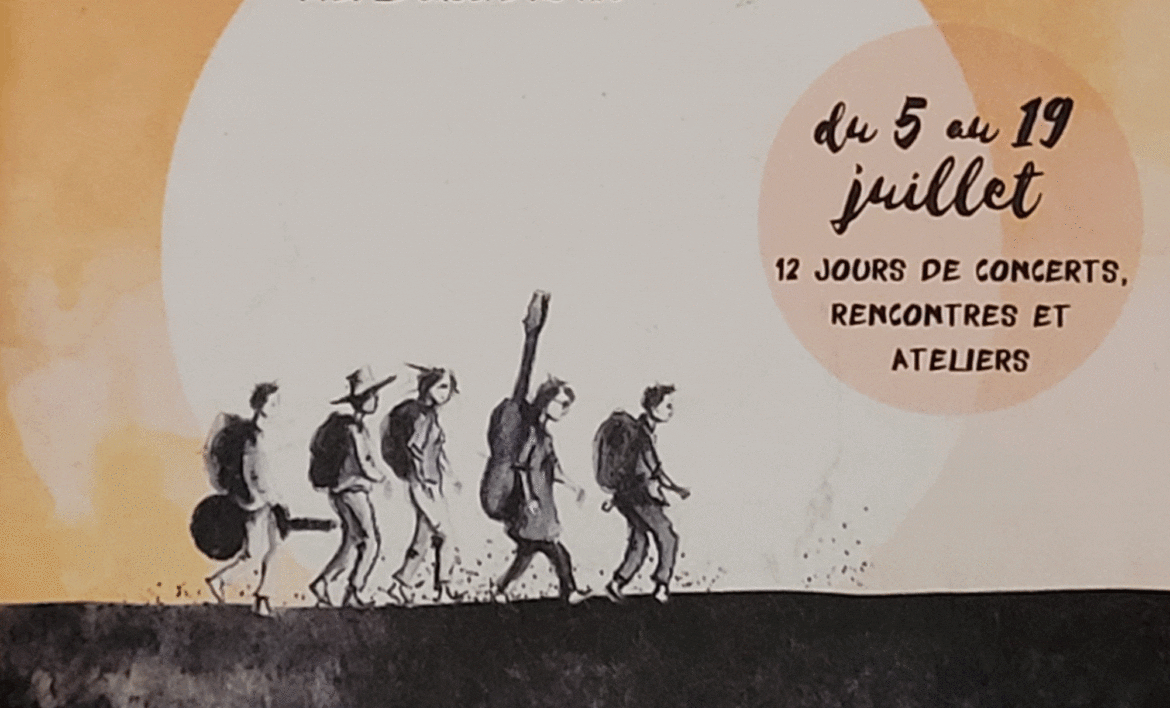 du 5 au 19
juillet
12 JOURS DE CONCERTS,
RENCONTRES ET
ATELIERS